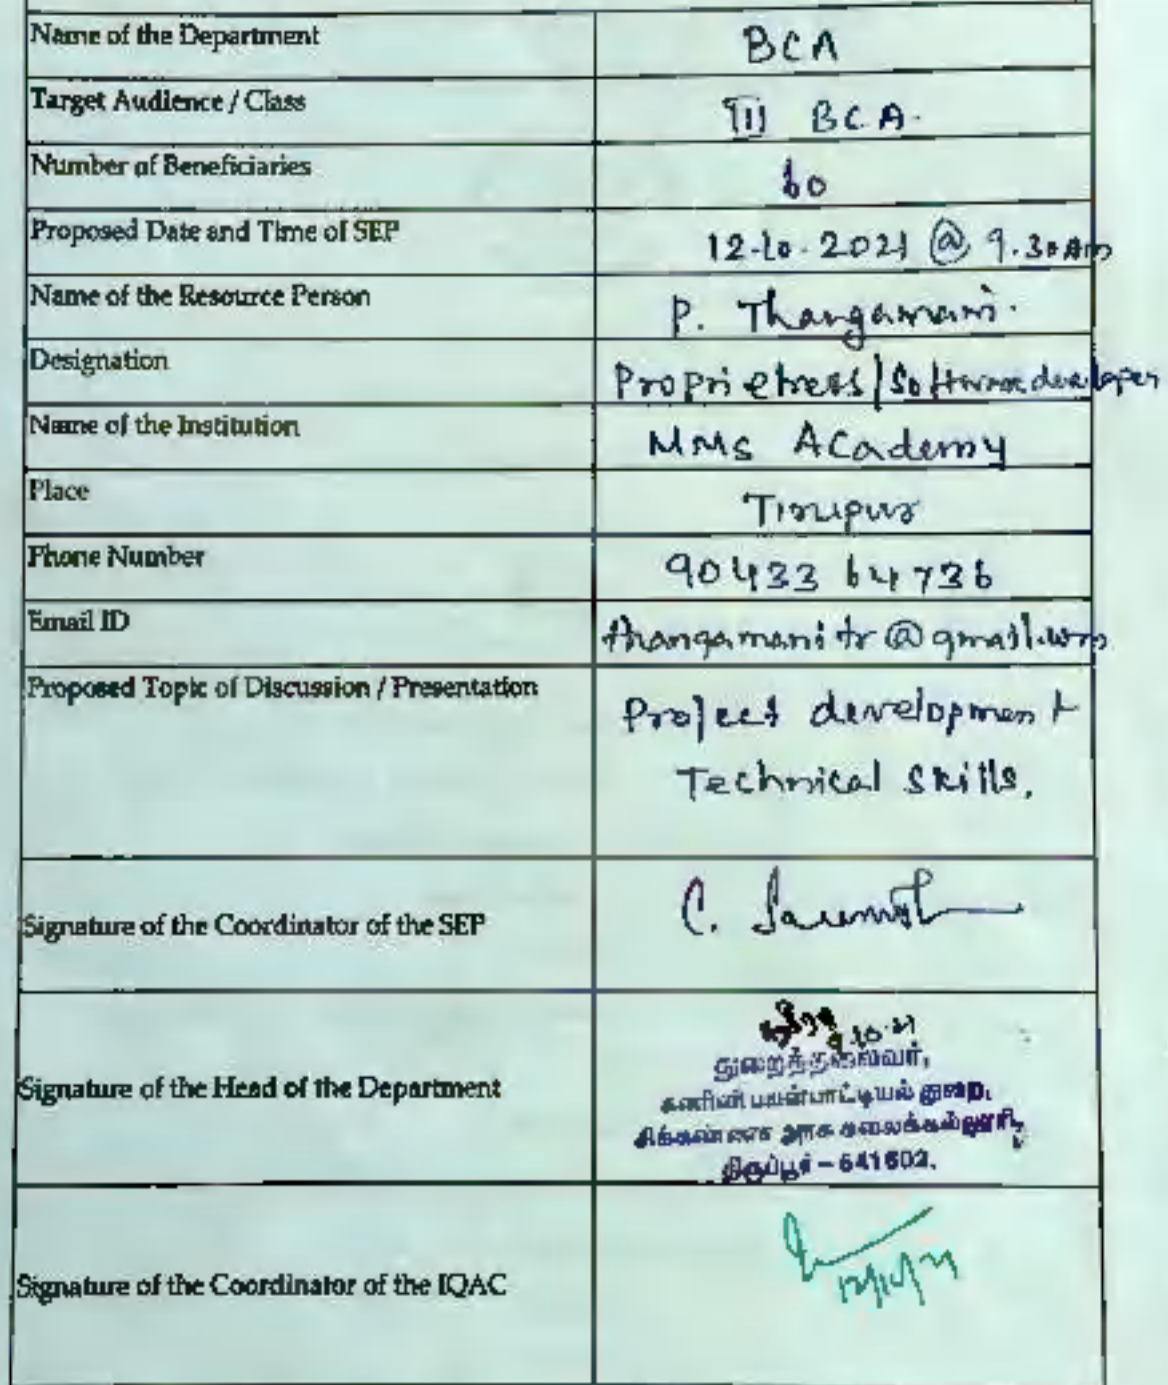 Name of the Department BCA
Target Audience / Class III BCA.
Number of Beneficiaries 60
Proposed Date and Time of SEP 12-10-2021 @ 9.30 Am
Name of the Resource Person P. Thangamani.
Designation Proprietress/Software developer
Name of the Institution MMS ACademy
Place Tirupur
Phone Number 90433 64736
Email ID thangamanitr@gmail.com
Proposed Topic of Discussion / Presentation Project development
Technical Skills.
Signature of the Coordinator of the SEP C.
10.21
Signature of the Head of the Department துறைத்தலைவர்,
கணினி பயன்பாட்டியல் துறை,
சிக்கண்ண அரசு கலைக்கல்லூரி,
திருப்பூர் – 641602.
Signature of the Coordinator of the IQAC